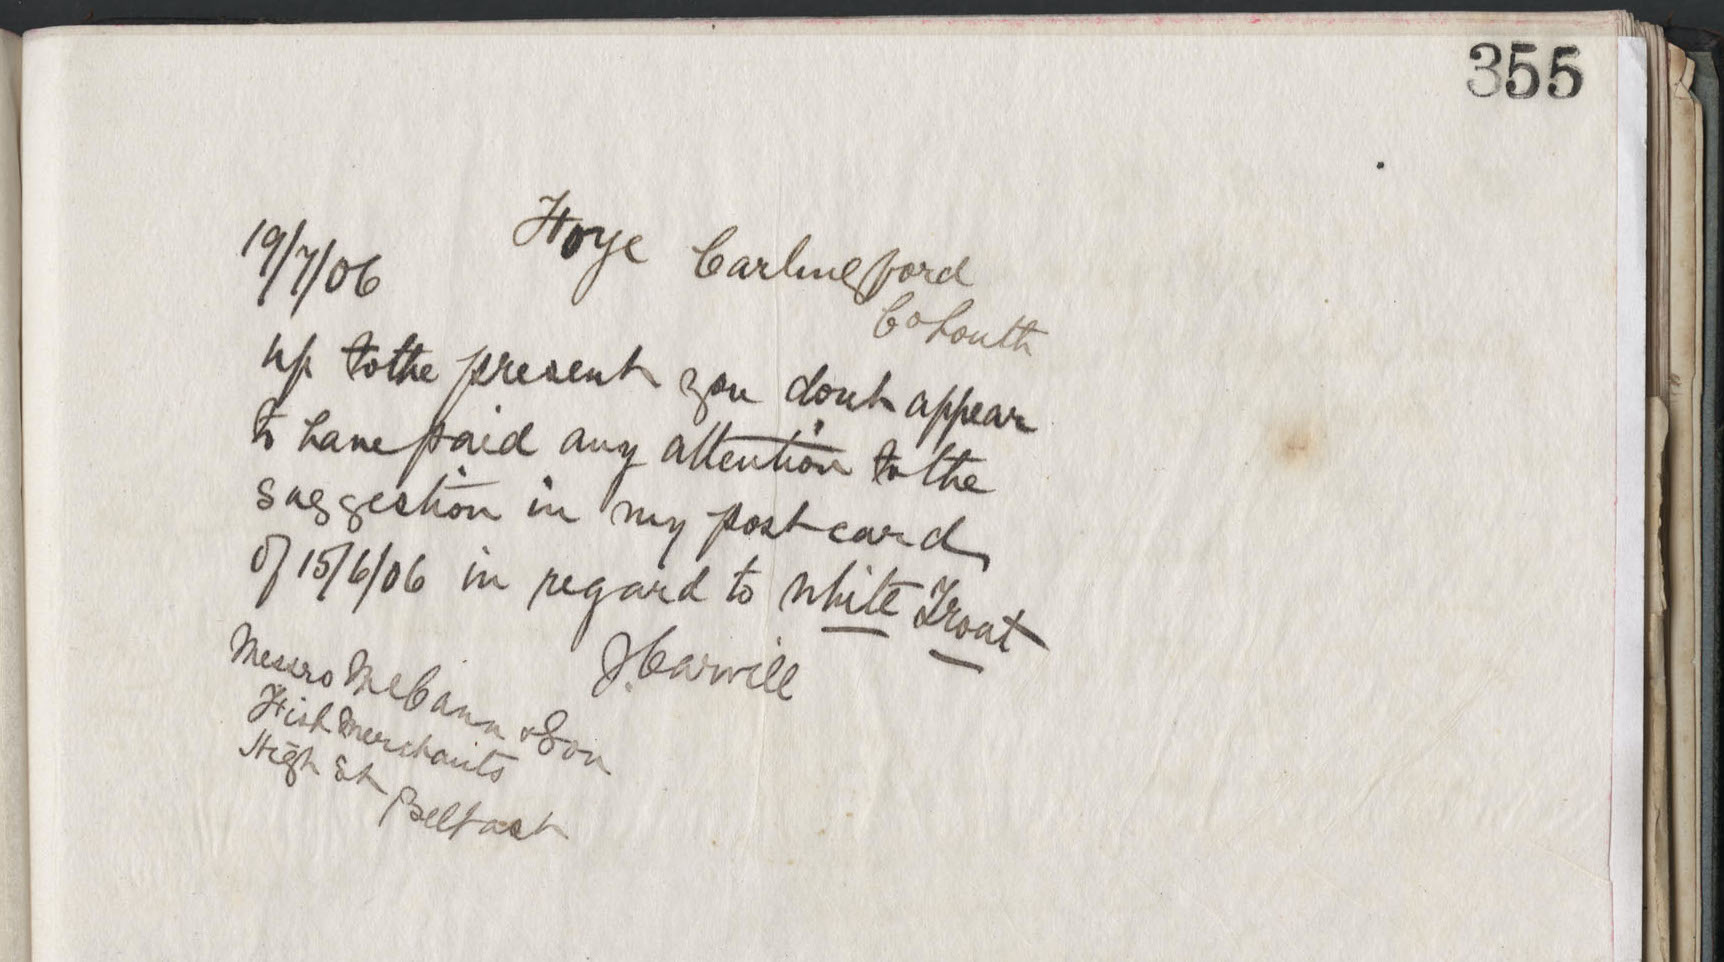 355
19/7/06 Hoye Carlingford
Co Louth
up to the present you dont appear
to have paid any attention to the
suggestion in my post card
of 15/6/06 in regard to White Trout
J. Carvill
Messrs McCann & Son
Fish Merchants
High St
Belfast